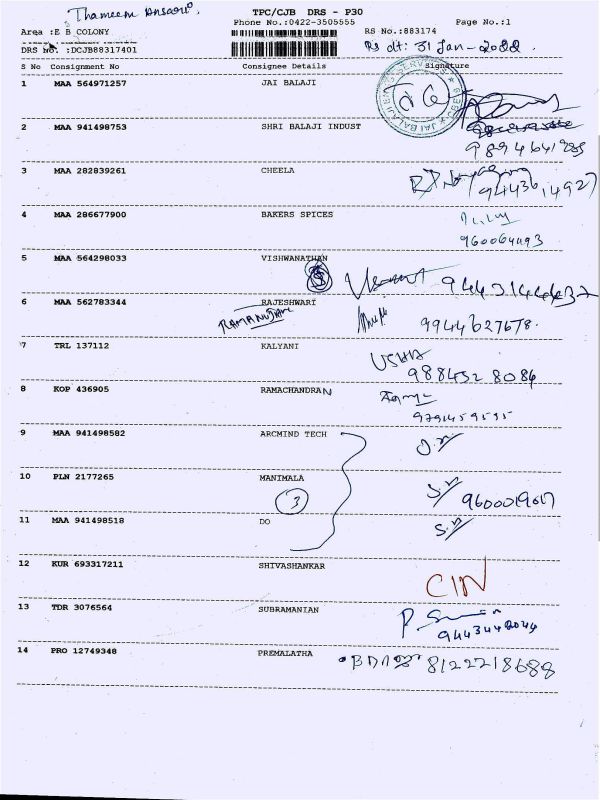 Thameem Ansari.
TPC/CJB DRS - P30
Phone No.:0422-3505555 Page No.:1
Area :E B COLONY RS No.:883174
DRS No. :DCJB88317401 Rs dt: 31 Jan-2022.
S No Consignment No Consignee Details Signature
1 MAA 564971257 JAI BALAJI
2 MAA 941498753 SHRI BALAJI INDUST
9894641985
3 MAA 282839261 CHEELA
9443614927
4 MAA 286677900 BAKERS SPICES
5 MAA 564298033 VISHWANATHAN
6 MAA 562783344 RAJESHWARI
9944627678.
7 TRL 137112 KALYANI
USHA
8 KOP 436905 RAMACHANDRAN
9791459595
9 MAA 941498582 ARCMIND TECH
10 PLN 2177265 MANIMALA
3
11 MAA 941498518 DO
12 KUR 693317211 SHIVASHANKAR
13 TDR 3076564 SUBRAMANIAN
14 PRO 12749348 PREMALATHA
8122718688